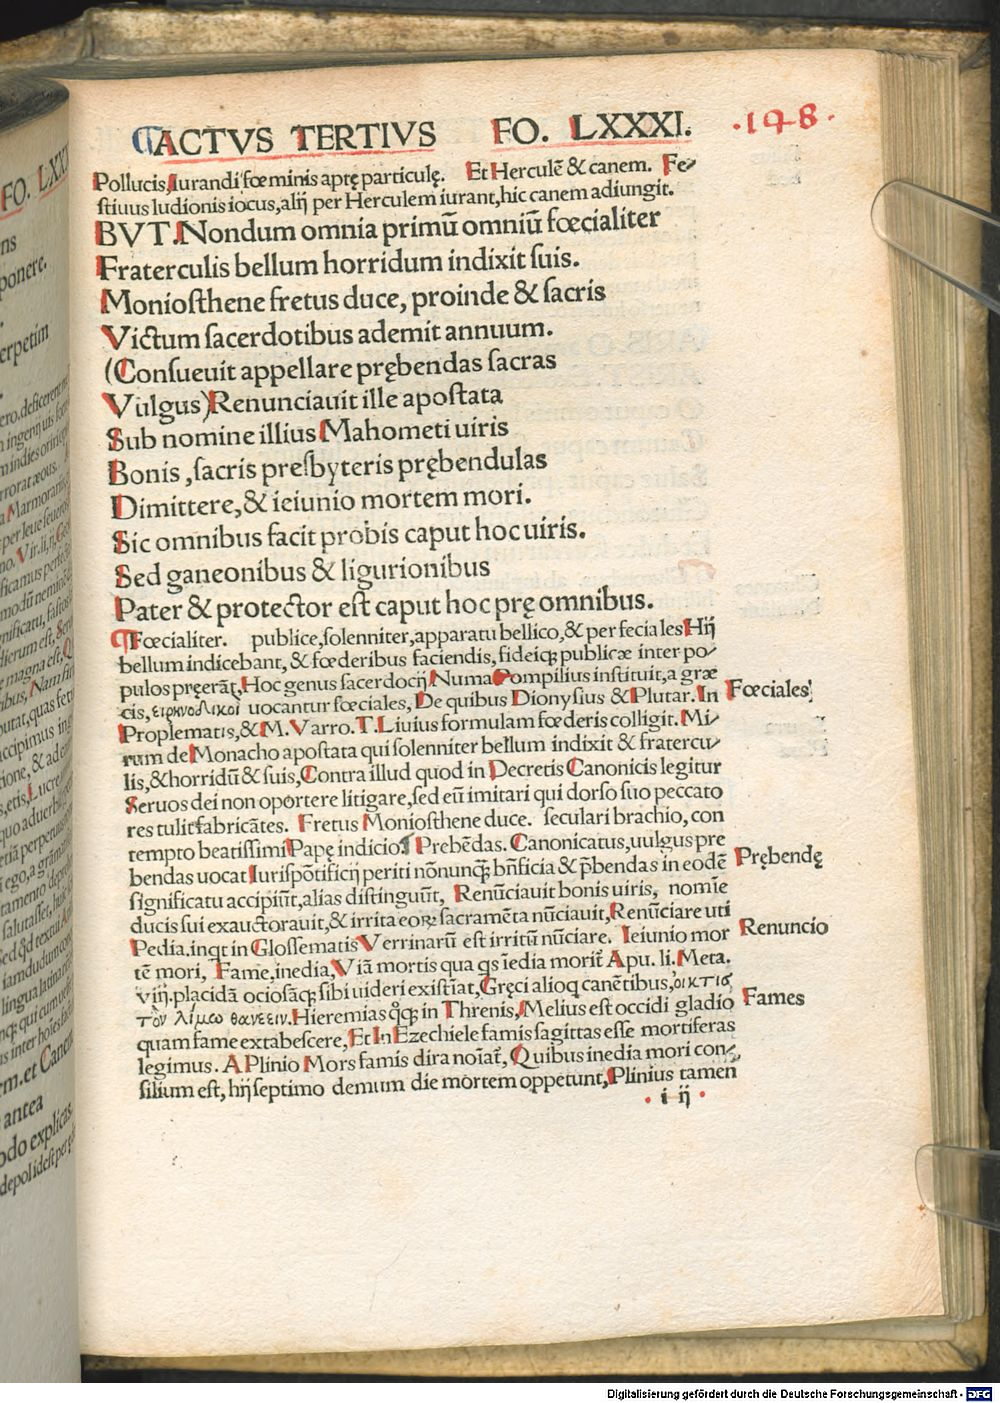 ACTVS TERTIVS FO. LXXXI. ·148·
Pollucis, Iurandi fœminis aptę particulę. Et Herculē & canem. Fe-
stiuus ludionis iocus, alij per Herculem iurant, hic canem adiungit.
BVT. Nondum omnia primū omniū fœcialiter
Fraterculis bellum horridum indixit suis.
Moniosthene fretus duce, proinde & sacris
Victum sacerdotibus ademit annuum.
(Consueuit appellare prębendas sacras
Vulgus) Renunciauit ille apostata
Sub nomine illius Mahometi uiris
Bonis, sacris presbyteris prębendulas
Dimittere, & ieiunio mortem mori.
Sic omnibus facit probis caput hoc uiris.
Sed ganeonibus & ligurionibus
Pater & protector est caput hoc prę omnibus.
¶Fœcialiter. publice, solenniter, apparatu bellico, & per feciales Hij
bellum indicebant, & fœderibus faciendis, fideiq; publicæ inter po-
pulos pręerāt, Hoc genus sacerdocij Numa Pompilius instituit, a græ
cis, ειρηνοδικοι uocantur fœciales, De quibus Dionysius & Plutar. In
Fœciales
Proplematis, & M. Varro. T. Liuius formulam fœderis colligit. Mi-
rum de Monacho apostata qui solenniter bellum indixit & fratercu-
lis, & horridū & suis, Contra illud quod in Decretis Canonicis legitur
Seruos dei non oportere litigare, sed eū imitari qui dorso suo peccato
res tulit fabricātes. Fretus Moniosthene duce. seculari brachio, con
tempto beatissimi Papę indicio Prebēdas. Canonicatus, uulgus pre
bendas uocat Iurispōtificij periti nōnunq̄ bñficia & p̄bendas in eodē
Prębendę
significatu accipiūt, alias distinguūt, Renūciauit bonis uiris, nomīe
ducis sui exauctorauit, & irrita eorꝝ sacramēta nūciauit, Renūciare uti
Pedia. inqt in Glossematis Verrinarū est irritū nūciare. Ieiunio mor
Renuncio
tē mori, Fame, inedia, Viā mortis qua qs īedia morit̄ Apu. li. Meta.
viij. placidā ociosāq; sibi uideri existīat, Gręci alioq canētibus, οικτισ
τὸν λίμεω θανεειν. Hieremias q̊q; in Threnis, Melius est occidi gladio
Fames
quam fame extabescere, Et In Ezechiele famis sagittas esse mortiferas
legimus. A Plinio Mors famis dira noīat̄, Quibus inedia mori con-
silium est, hij septimo demum die mortem oppetunt, Plinius tamen
i ij
Digitalisierung gefördert durch die Deutsche Forschungsgemeinschaft - DFG